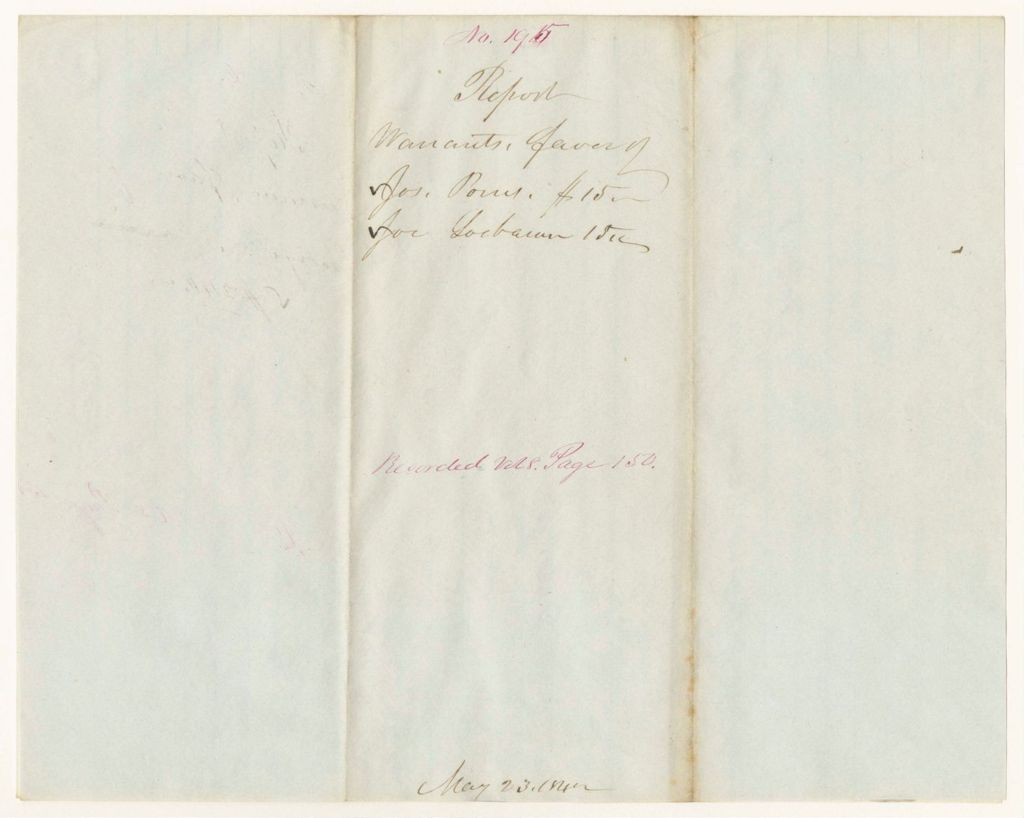 No. 195
Report
Warrants, favor of
Jos. Porus. $15
Joe Socbasin 15
Recorded Vol 8. Page 150.
May 23. 184